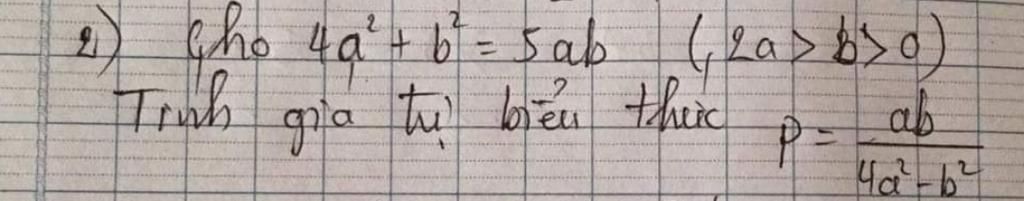 2) Cho 4a² + b² = 5ab (2a > b > 0)
Tính giá trị biểu thức P = ab / (4a² - b²)